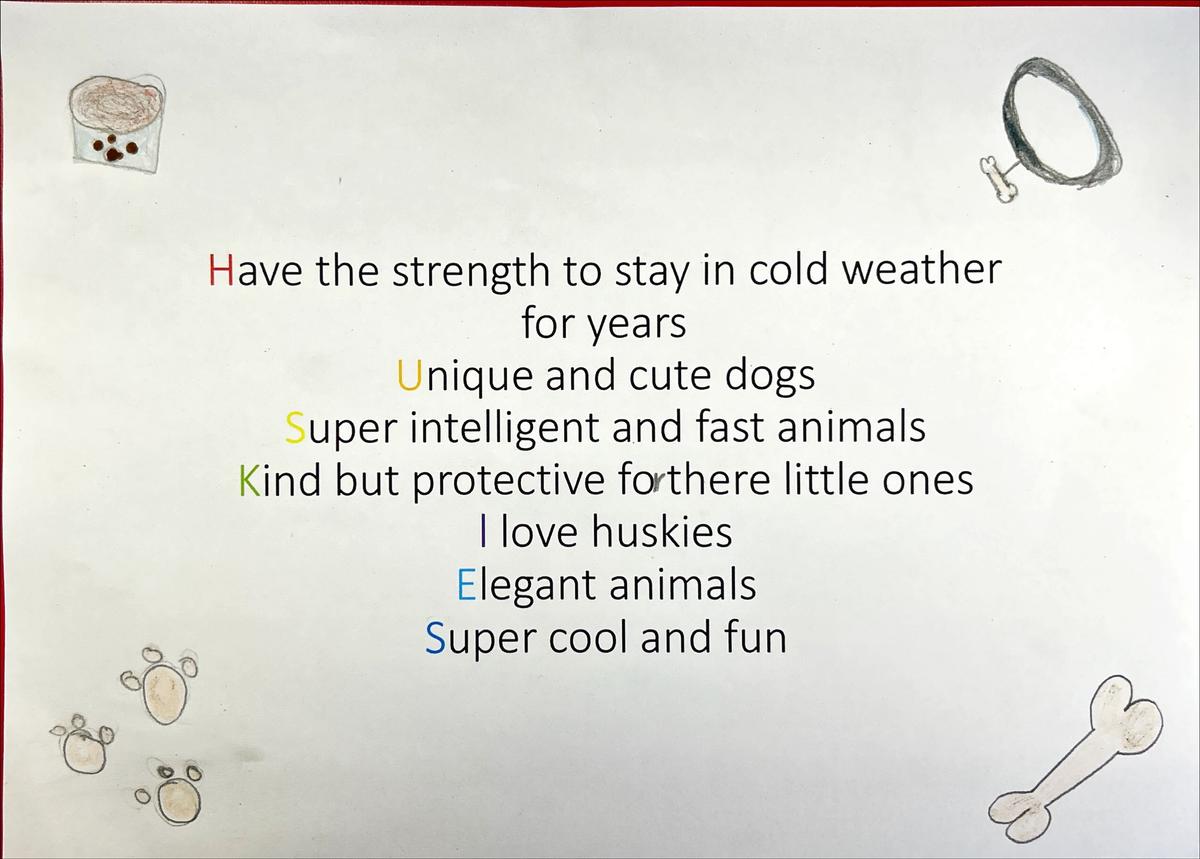 Have the strength to stay in cold weather
for years
Unique and cute dogs
Super intelligent and fast animals
Kind but protective forthere little ones
I love huskies
Elegant animals
Super cool and fun